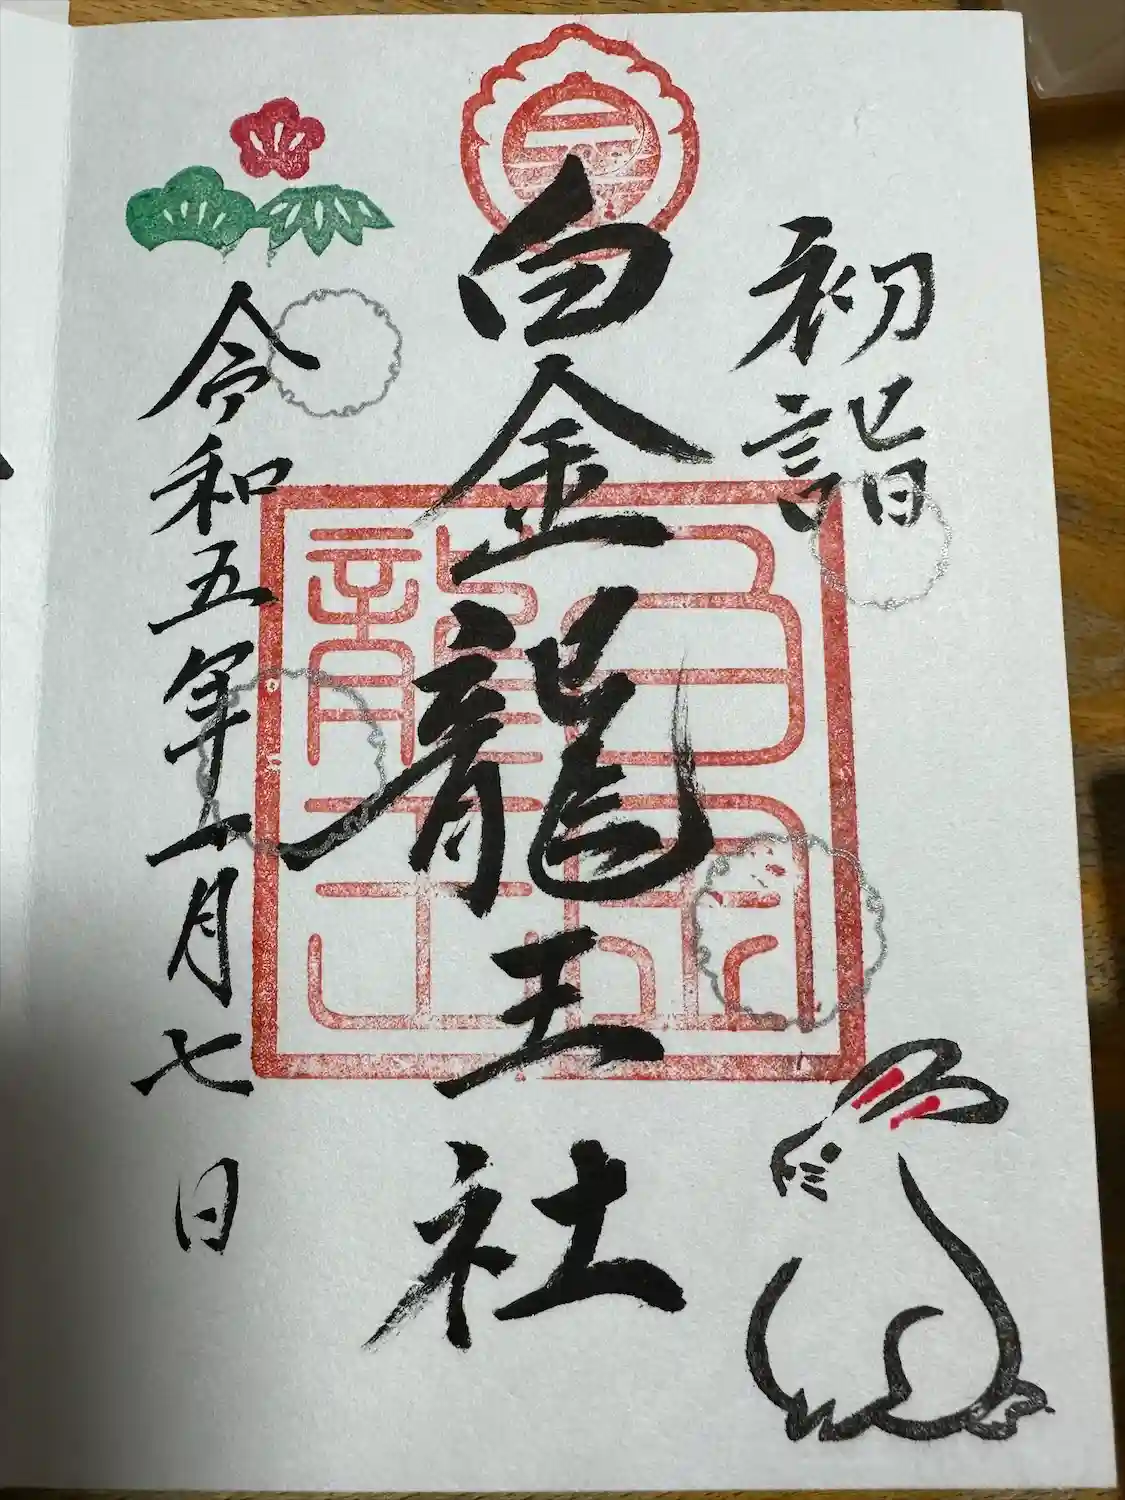 初詣
白金龍王社
白金龍王
令和五年一月七日